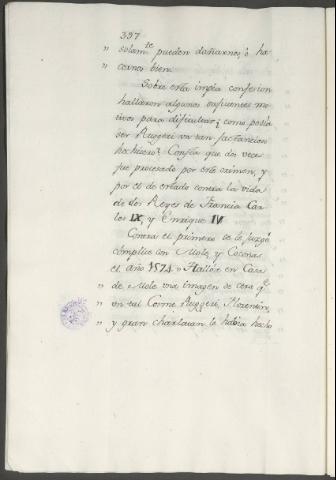 337
" solam.te pueden dañarnos, ò ha-
" cernos bien.
Sobre esta impia confesion
hallaron algunos suficientes mo-
tivos para dificultar; como podia
ser Ruggeri un tan factancioso
hechicero? Consta que dos veces
fue procesado por este crimen, y
por el de atentado contra la vida
de los Reyes de Francia Car-
los IX, y Enrique IV.
Contra el primero se le juzgó
cómplice con Mole, y Coconas
el año 1574. " Hallóse en Casa
" de Mole una imagen de cera q.e
" un tal Cosme Ruggeri, Florentin,
" y gran charlatan le habia hecho